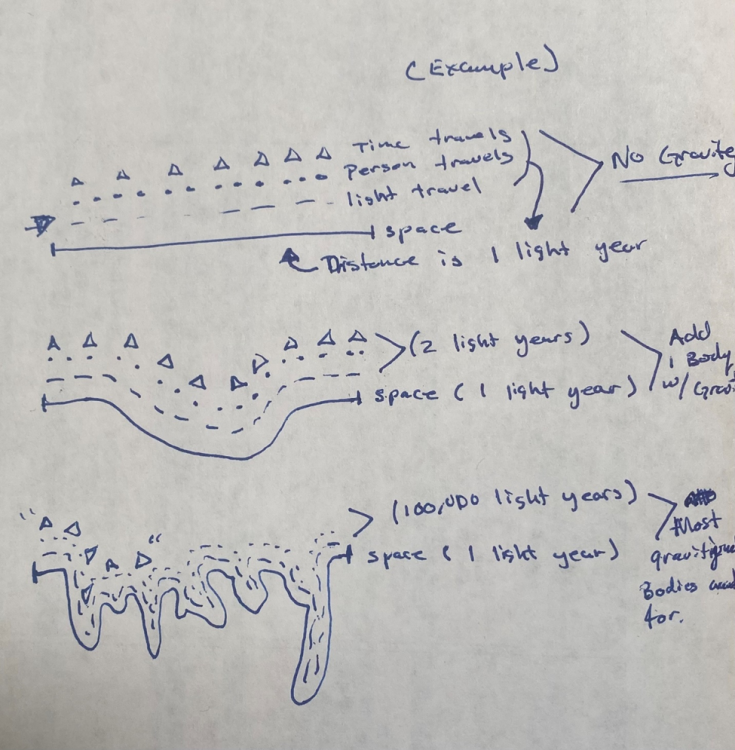 (Example)
Time travels
Person travels
light travel
No Gravite
space
Distance is 1 light year
(2 light years)
space (1 light year)
Add
1 Body
w/ Grav
(100,000 light years)
space (1 light year)
Most
Bodies
for.